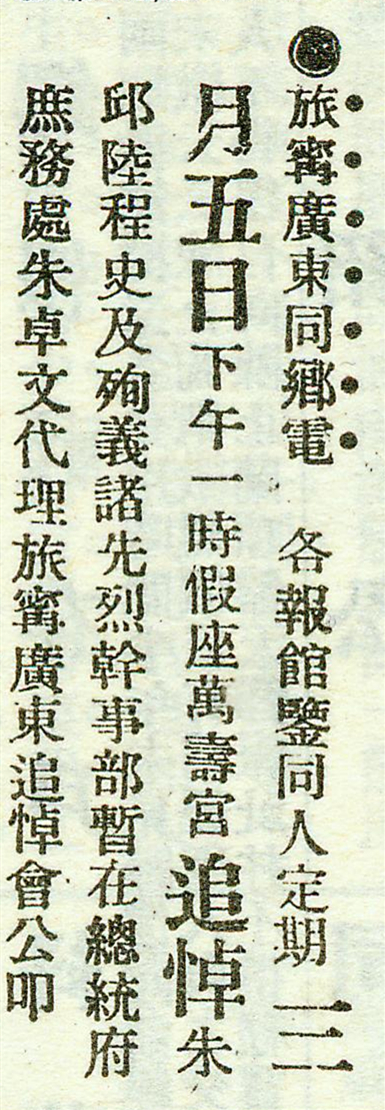 旅甯廣東同鄉電　各報館鑒同人定期三
月五日下午一時假座萬壽宮追悼朱
邱陸程史及殉義諸先烈幹事部暫在總統府
庶務處朱卓文代理旅甯廣東追悼會公叩